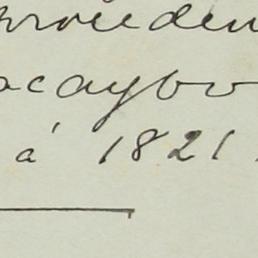 providen
acaybo
á 1821.